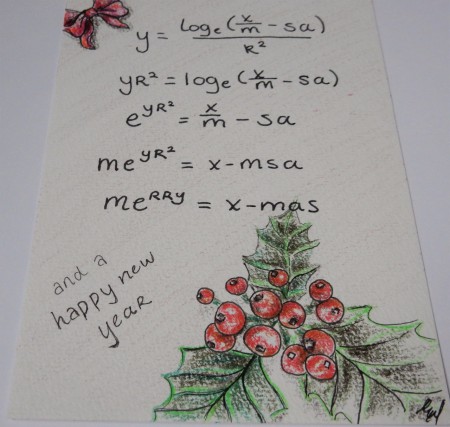 y = logₑ(x/m − sa)/R²
yR² = logₑ(x/m − sa)
e^yR² = x/m − sa
me^yR² = x−msa
me^RRy = x−mas
and a
happy new
year